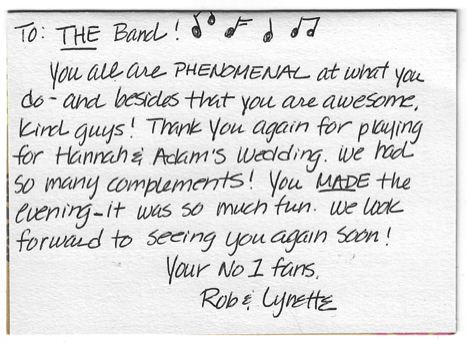 To: THE Band!
You all are PHENOMENAL at what you
do - and besides that you are awesome,
kind guys! Thank You again for playing
for Hannah & Adam's Wedding. We had
so many complements! You MADE the
evening - it was so much fun. We look
forward to seeing you again soon!
Your No 1 fans,
Rob & Lynette